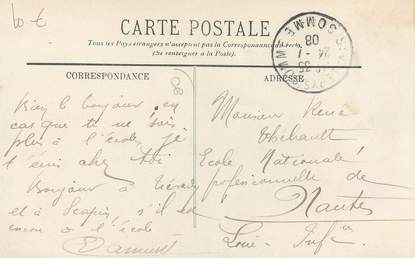 10 €
CARTE POSTALE
Tous les Pays étrangers n'acceptent pas la Correspondance au Recto.
(Se renseigner à la Poste).
CORRESPONDANCE
ADRESSE
SOMME
08
Bien le bonjour, en
cas que tu ne sois
plus à l'école, je
t'écris chez toi
Bonjour à
et à Scapin, s'il est
encore à l'école
Monsieur René
Thébault
Ecole Nationale
professionnelle de
Nantes
Loire-Infre